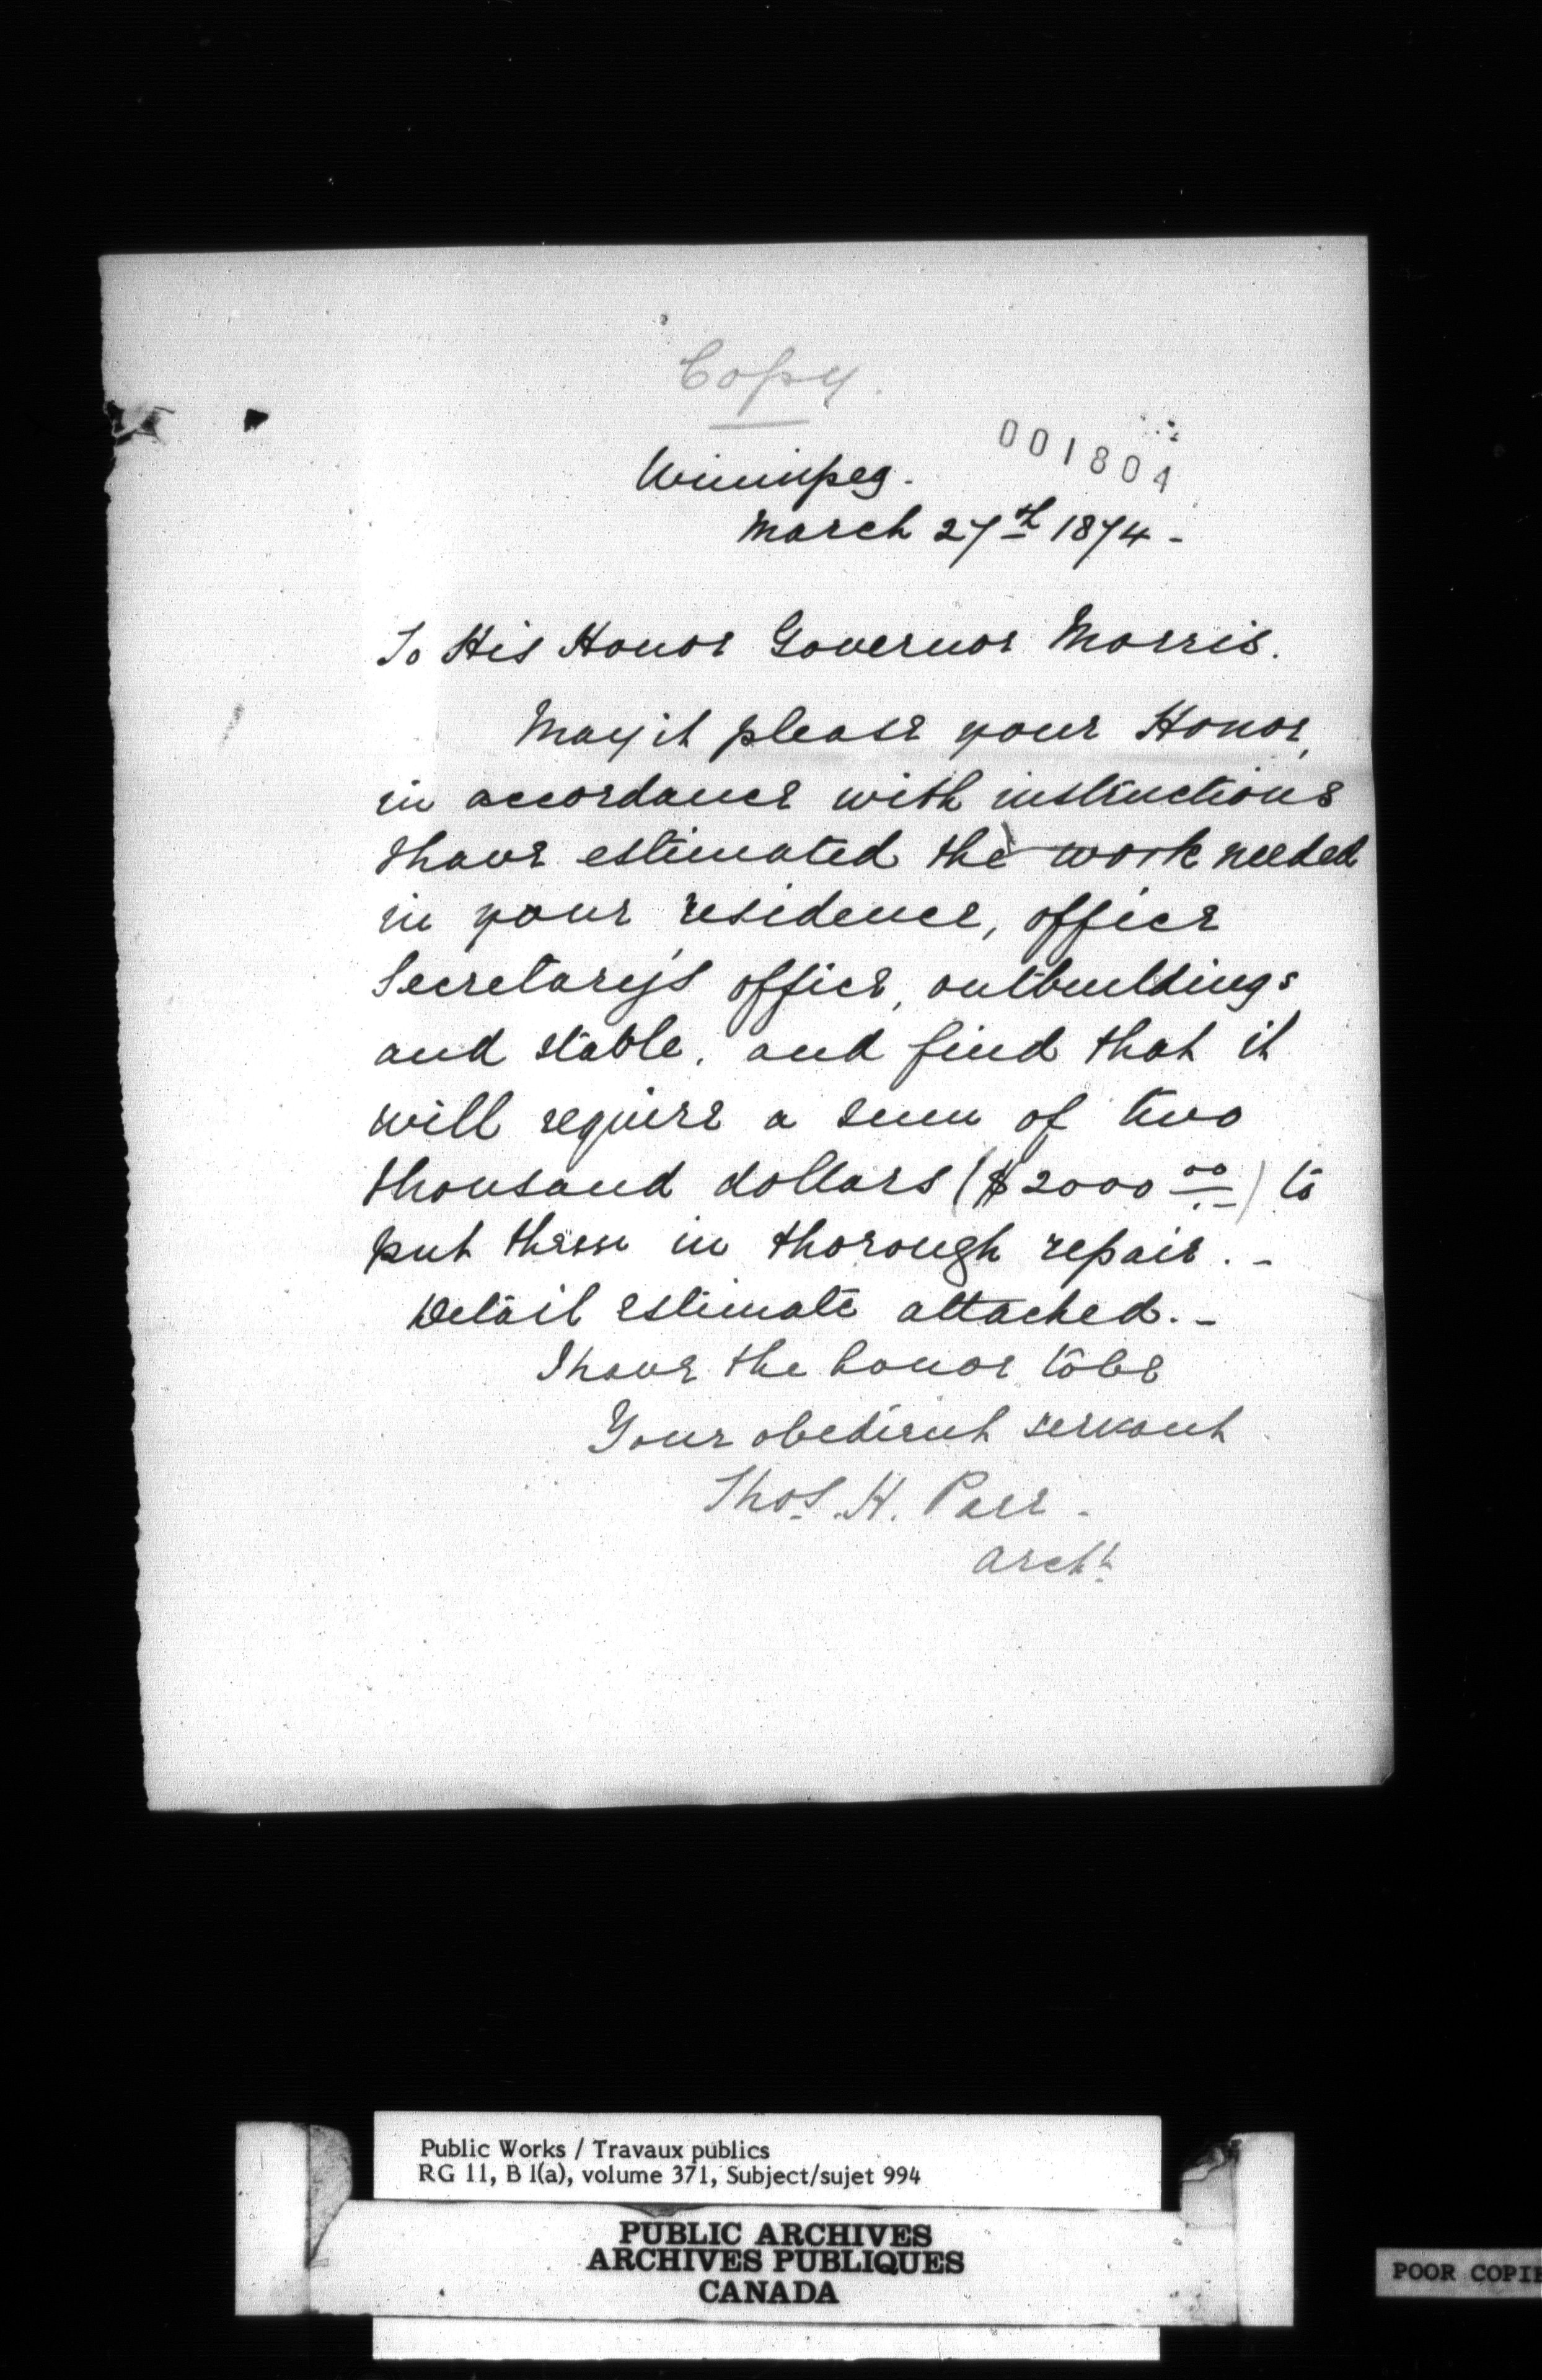 Copy.
001804
Winnipeg.
March 27th 1874 -
To His Honor Governor Morris.
May it please your Honor,
in accordance with instructions
I have estimated the work needed
in your residence, office
Secretary's office, outbuildings
and stable, and find that it
will require a sum of two
thousand dollars ($2000 00) to
put these in thorough repair. -
Detail estimate attached. -
I have the honor to be
Your obedient servant
Thos. H. Parr -
Archt.
Public Works / Travaux publics
RG 11, B 1(a), volume 371, Subject/sujet 994
PUBLIC ARCHIVES
ARCHIVES PUBLIQUES
CANADA
POOR COPIE